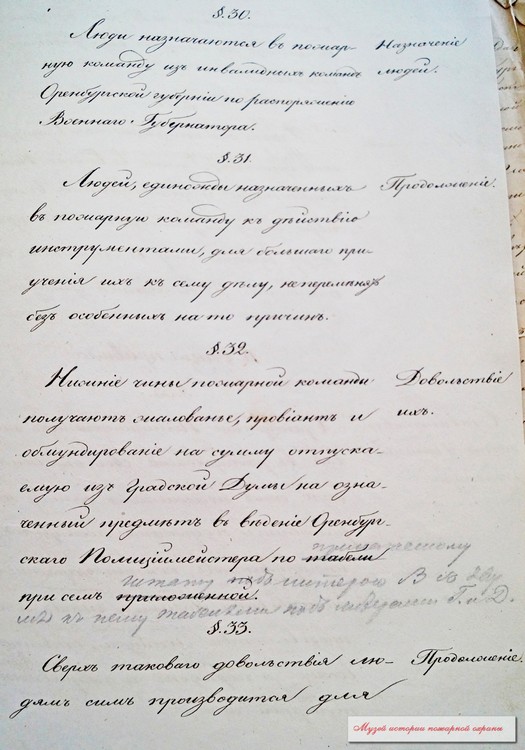 §. 30.
Люди назначаются въ пожар- Назначеніе
ную команду изъ инвалидныхъ командъ людей.
Оренбургской губерніи по распоряженію
Военнаго Губернатора.
§. 31.
Людей, единожды назначенныхъ Продолженіе.
въ пожарную команду къ дѣйствію
инструментами, для большаго прі-
ученія ихъ къ сему дѣлу, не перемѣнять
безъ особенныхъ на то причинъ.
§. 32.
Нижніе чины пожарной команды Довольствіе
получаютъ жалованье, провіантъ и ихъ.
обмундированіе на сумму отпуска-
емую изъ Градской Думы на озна-
ченный предмѣтъ въ вѣденіе Оренбург-
скаго Полиціймейстера по табели
прилагаемому
штату подъ литерою В и дву
при семъ приложенной.
мъ къ нему табелями подъ литерами Г. и Д.
§. 33.
Сверхъ таковаго довольствія лю- Продолженіе.
дямъ симъ производится для
Музей истории пожарной охраны